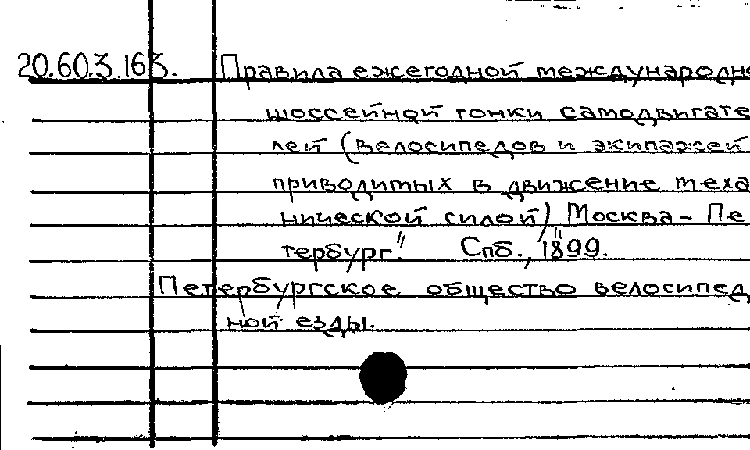 20.60.3.163. Правила ежегодной международно
шоссейной гонки самодвигате
лей (велосипедов и экипажей
приводимых в движение меха
нической силой) Москва - Пе
тербург." Спб., 1899.
Петербургское общество велосипед
ной езды.